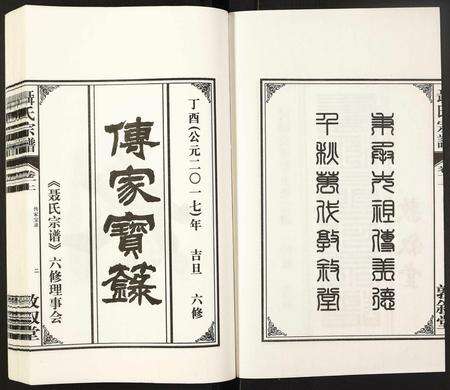 秉承先祖傳美德
千秋萬代敦敘堂
丁酉(公元二〇一七)年 吉旦 六修
傳家寶籙
《聂氏宗谱》六修理事会
聶氏宗譜
卷二
二
敦敘堂